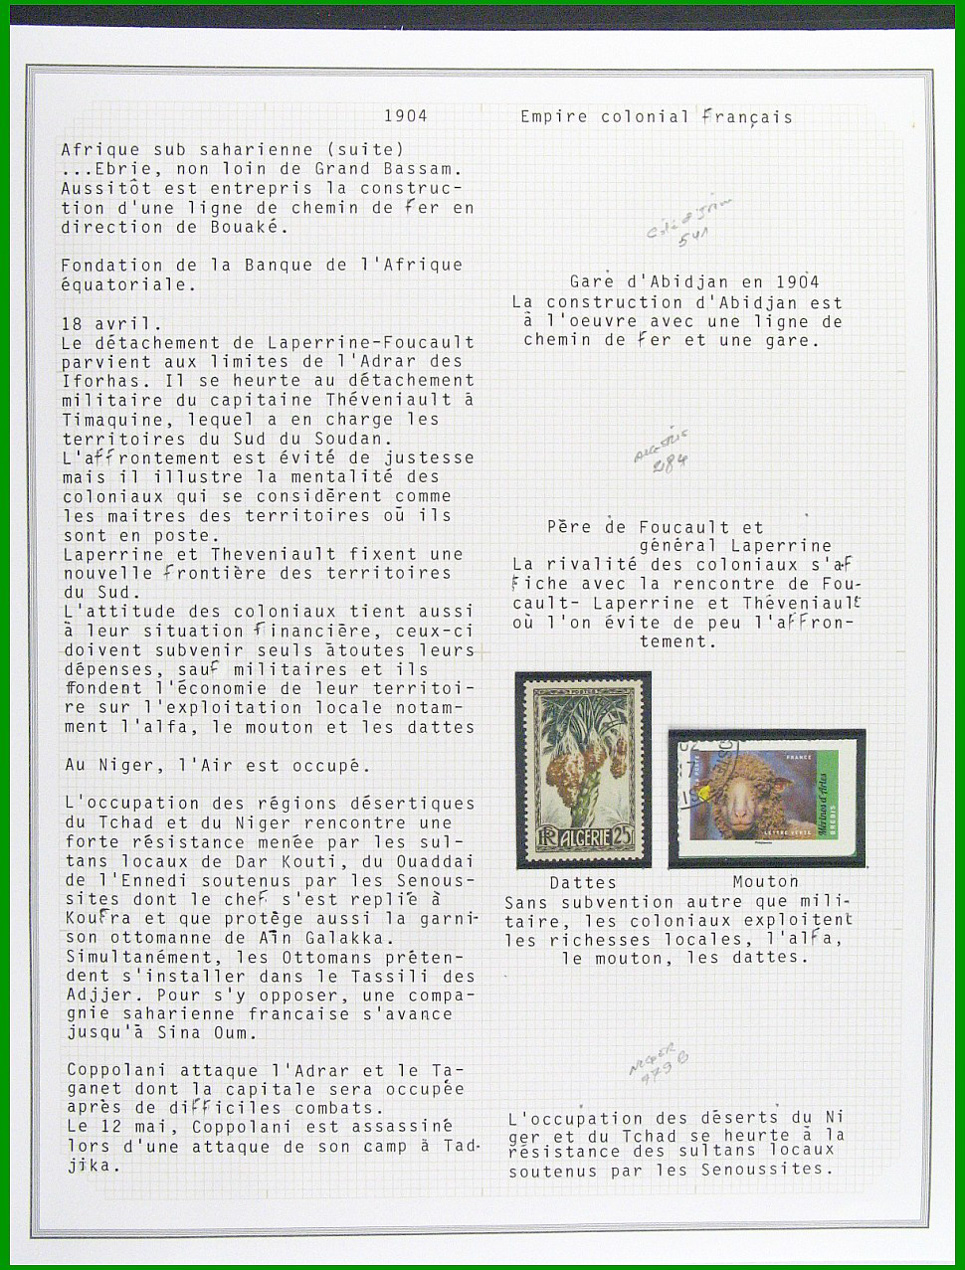 1904
Empire colonial Français
Afrique sub saharienne (suite)
...Ebrie, non loin de Grand Bassam.
Aussitôt est entrepris la construc-
tion d'une ligne de chemin de fer en
direction de Bouaké.
Fondation de la Banque de l'Afrique
équatoriale.
18 avril.
Le détachement de Laperrine-Foucault
parvient aux limites de l'Adrar des
Iforhas. Il se heurte au détachement
militaire du capitaine Théveniault à
Timaquine, lequel a en charge les
territoires du Sud du Soudan.
L'affrontement est évité de justesse
mais il illustre la mentalité des
coloniaux qui se considèrent comme
les maitres des territoires où ils
sont en poste.
Laperrine et Theveniault fixent une
nouvelle frontière des territoires
du Sud.
L'attitude des coloniaux tient aussi
à leur situation financière, ceux-ci
doivent subvenir seuls àtoutes leurs
dépenses, sauf militaires et ils
fondent l'économie de leur territoi-
re sur l'exploitation locale notam-
ment l'alfa, le mouton et les dattes
Au Niger, l'Air est occupé.
L'occupation des régions désertiques
du Tchad et du Niger rencontre une
forte résistance menée par les sul-
tans locaux de Dar Kouti, du Ouaddai
de l'Ennedi soutenus par les Senous-
sites dont le chef s'est replié à
Koufra et que protège aussi la garni-
son ottomanne de Aïn Galakka.
Simultanément, les Ottomans préten-
dent s'installer dans le Tassili des
Adjjer. Pour s'y opposer, une compa-
gnie saharienne francaise s'avance
jusqu'à Sina Oum.
Coppolani attaque l'Adrar et le Ta-
ganet dont la capitale sera occupée
après de difficiles combats.
Le 12 mai, Coppolani est assassiné
lors d'une attaque de son camp à Tad-
jika.
541
Gare d'Abidjan en 1904
La construction d'Abidjan est
à l'oeuvre avec une ligne de
chemin de fer et une gare.
ALGÉRIE
284
Père de Foucault et
général Laperrine
La rivalité des coloniaux s'af
fiche avec la rencontre de Fou-
cault- Laperrine et Théveniault
où l'on évite de peu l'affron-
tement.
POSTES
RF ALGERIE 25F
FRANCE
LETTRE VERTE
Mérinos d'Arles
BREBIS
Dattes
Mouton
Sans subvention autre que mili-
taire, les coloniaux exploitent
les richesses locales, l'alfa,
le mouton, les dattes.
NIGER
L'occupation des déserts du Ni
ger et du Tchad se heurte à la
résistance des sultans locaux
soutenus par les Senoussites.